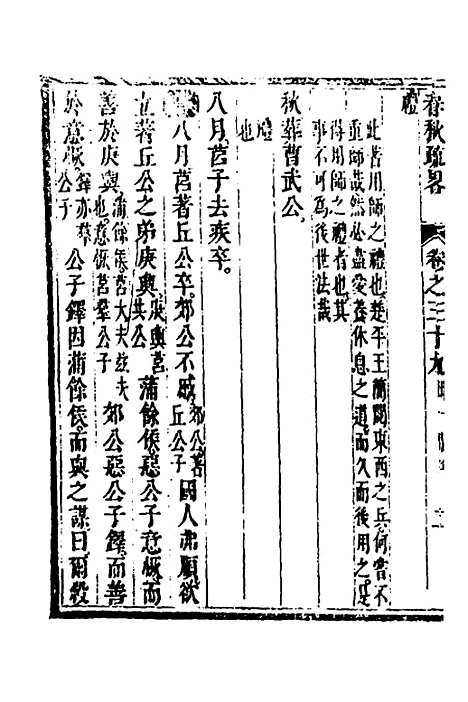 春秋疏畧 卷之三十九 昭十四年
禮
此善用師之禮也楚平王簡閱東西之兵何嘗不
重師哉然必盡安養休息之道而久而後用之是
得用師之禮者也其
事不可為後世法哉
秋葬曹武公
禮
也
八月莒子去疾卒。
八月莒著丘公卒。郊公不慼郊公著丘公子國人弗順欲
立著丘公之弟庚輿庚輿莒共公蒲餘侯惡公子意恢而
善於庚輿蒲餘侯莒大夫玆夫也意恢莒羣公子郊公惡公子鐸而善
於意恢鐸亦羣公子公子鐸因蒲餘侯而與之謀曰爾殺